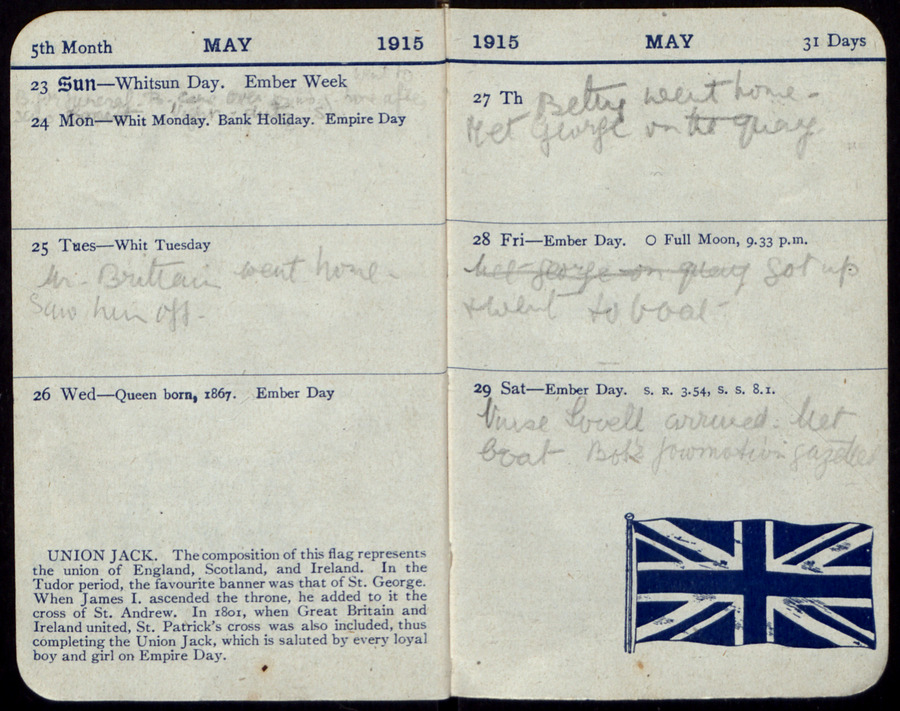 5th Month MAY 1915
23 Sun—Whitsun Day. Ember Week
24 Mon—Whit Monday. Bank Holiday. Empire Day
25 Tues—Whit Tuesday
Mr. Brittain went home.
Saw him off.
26 Wed—Queen born, 1867. Ember Day
UNION JACK. The composition of this flag represents
the union of England, Scotland, and Ireland. In the
Tudor period, the favourite banner was that of St. George.
When James I. ascended the throne, he added to it the
cross of St. Andrew. In 1801, when Great Britain and
Ireland united, St. Patrick's cross was also included, thus
completing the Union Jack, which is saluted by every loyal
boy and girl on Empire Day.
1915 MAY 31 Days
27 Th Betty went home.
Met George on the quay
28 Fri—Ember Day. O Full Moon, 9.33 p.m.
Met George on quay Got up
& went to boat
29 Sat—Ember Day. S. R. 3.54, S. S. 8.1.
Nurse Lovell arrived. Met
boat Bob's